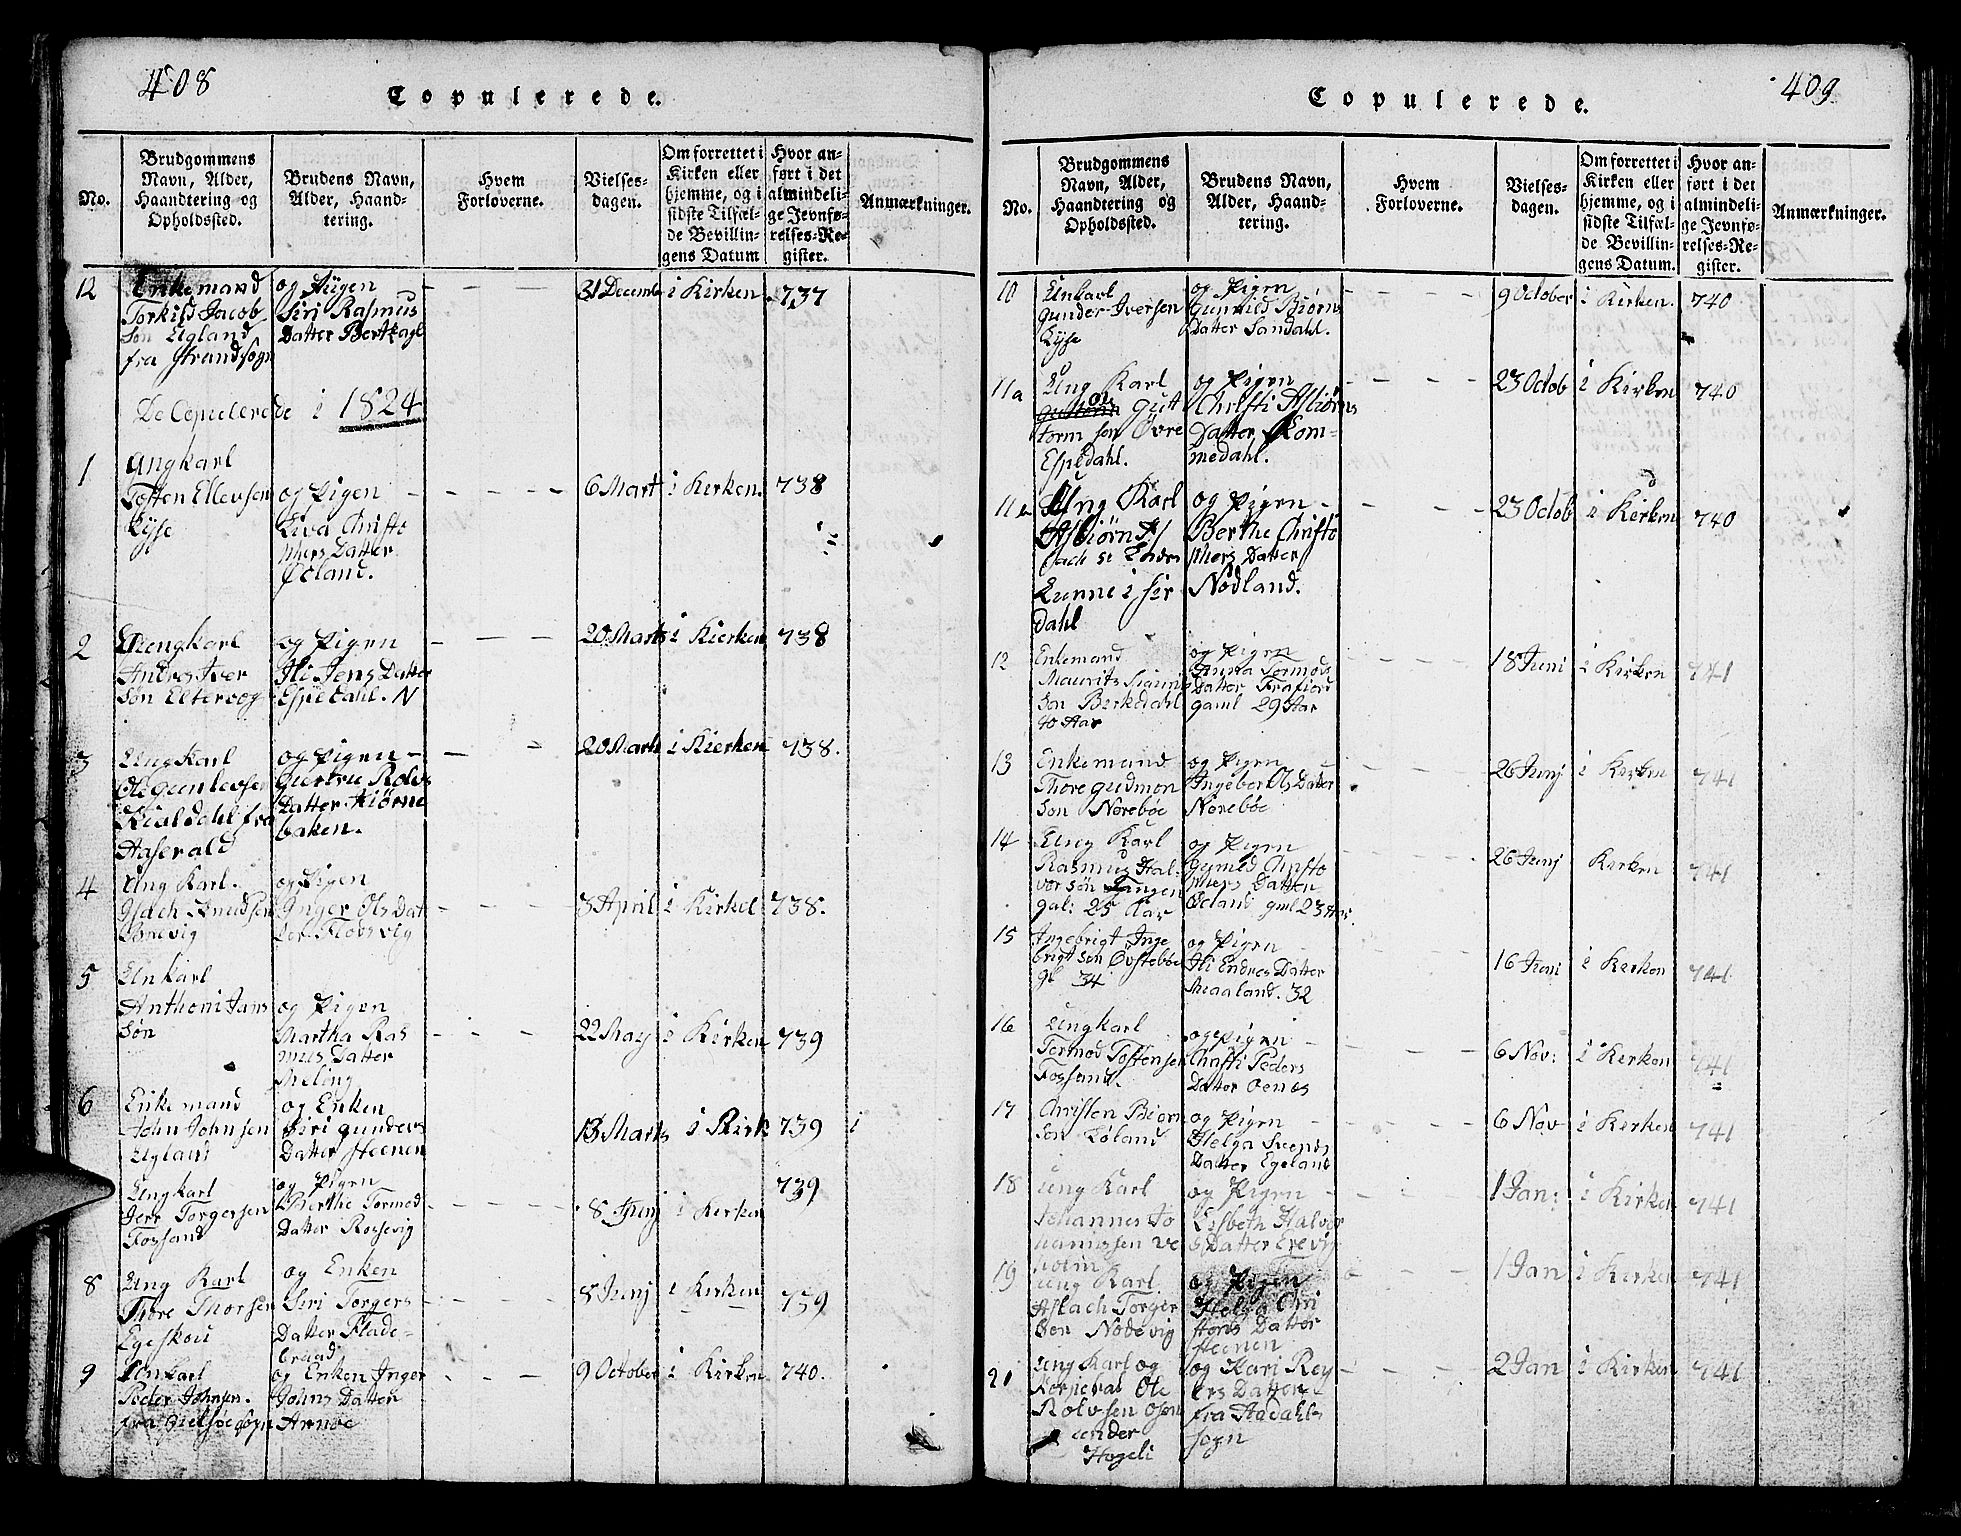 408
Copulerede.
No.
Brudgommens
Navn, Alder,
Haandtering og
Opholdssted.
Brudens Navn,
Alder, Haand-
tering.
Hvem
Forloverne.
Vielses-
dagen.
Om forrettet i
Kirken eller
hjemme, og i
sidste Tilfæl-
de Bevillin-
gens Datum
Hvor an-
ført i det
almindeli-
ge Jevnfø-
relses-Re-
gister.
Anmærkninger.
12
Enkemand
Torkild Jacob
Søn Ugland
fra Strandsogn
og Pigen
Siri Rasmus
Datter
31 Decemb
i Kirken
737
De Copulerede i 1824
1
Ungkarl
Tosten Ellevsen
Lyse
og Pigen
Liva Christo
phers Datter
Øeland.
6 Mart
i Kirken.
738
2
Ungkarl
Andres Iver
Søn Eltervog
og Pigen
Ili Jens Datter
Espedahl. N
20 Marts
i Kierken
738
3
Ungkarl
Ole Gunlevsen
fra
Aaserald
og Pigen
Giertrue Rolvs
Datter Kiørne
baken.
20 Marts
i Kierken
738.
4
Ung Karl.
Aslach Knudsen
og Pigen
Inger Ols Dat
ter. Flovsvig
3 April
i Kirke
738.
5
Unkarl
Anthoni Jans
Søn
og Pigen
Martha Ras
mus Datter
Meling
22 May
i Kirken
739
6
Enkemand
John Johnsen
Ugland
og Enken
Siri Gunders
Datter Steenen
13 Marts
i Kirk
739
Ungkarl
Jerr Torgersen
Fossand
og Pigen
Berthe Tormod
Datter Rossevig
8 Junj
i Kerken
739
8
Ung Karl
Thore Thorsen
Egeskou
og Enken
Siri Torgers
Datter Flade-
braad
8 Junj
i Kerken
739
9
Unkarl
Peder Johnsen
fra
og Enken Inger
Johns Datter
Arnøe
9 October
i Kirken
740.
409
Copulerede.
No.
Brudgommens
Navn, Alder,
Haandtering og
Opholdssted.
Brudens Navn,
Alder, Haand-
tering.
Hvem
Forloverne.
Vielses-
dagen.
Om forrettet i
Kirken eller
hjemme, og i
sidste Tilfæl-
de Bevillin-
gens Datum.
Hvor an-
ført i det
almindeli-
ge Jevnfø-
relses-Re-
gister.
Anmærkninger.
10
Unkarl
Gunder Iversen
Lyse
og Pigen
Gunnild Biørns
Datter Sandahl.
9 October
i Kirken.
740
11a
Ung Karl
Ole Gutt
torm søn Øvre
Espedahl.
og Pigen
Christi Asbiørns
Datter Kom-
medahl.
23 Octob
i Kirken
740
Ung Karl
Asbiørn
Lunne i Sir
dahl
og Pigen
Berthe Christo
phers Datter
Nødland.
23 Octob
i Kirken
740
12
Enkemand
Maurits
Søn Berkedahl
40 Aar
og Pigen
Anna Tormods
Datter Frafiord
gaml 29 Aar
18 Juni
i Kirken
741
13
Enkemand
Thore Gudmon
Søn Nørebøe
og Pigen
Ingebor Ols Datter
Nørebøe
26 Junj
i Kerken
741
14
Ung Karl
Rasmus Hal-
vor søn Tengen
gal: 25 Aar
og Pigen
Gunild Christo
phers Datter
Øeland gml 23 Aar
26 Junj
Kerken
741
15
Ingebrigt Inge
brigt søn Øvstebbø
gl 34
og Pigen
Ili Endres Datter
Meaaland. 32
16 Juni
i Kerken
741
16
Ungkarl
Tormod Tostensen
Fossand.
og Pigen
Christi Peders
Datter Oenes
6 Nov:
i Kerken
741
17
Christen Biørn
Søn Løland
og Pigen
Helga Svends
Datter Egeland
6 Nov
i Kirken
741
18
Ung Karl
Johannes Jo
hannissen Ve
holm
og Pigen
Lisbeth Halvor
s Datter Erevig
1 Jan:
i Kirken
741
19
Ung Karl
Aslach Torger
Søn Nødevig
og Pigen
Helga Chri
stens Datter
Steenen
1 Jan
i Kerken
741
21
Ung Karl og
Ole
Rolvsen Osen
under
Hogeli
og Kari Rey
ers Datter
fra Aadahls
sogn
2 Jan
i Kirken
741